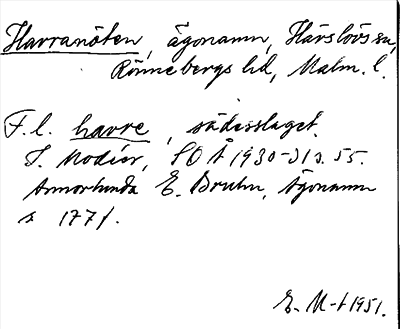 Harranöten, ägonamn, Härslövs sn,
Rönnebergs hd, Malm. l.
F.l. havre, sädesslaget.
I. Modéer, SO Å 1930-31 s. 55.
Annorlunda E. Bruhn, Ägonamn
s 177f.
E. M-t 1951.